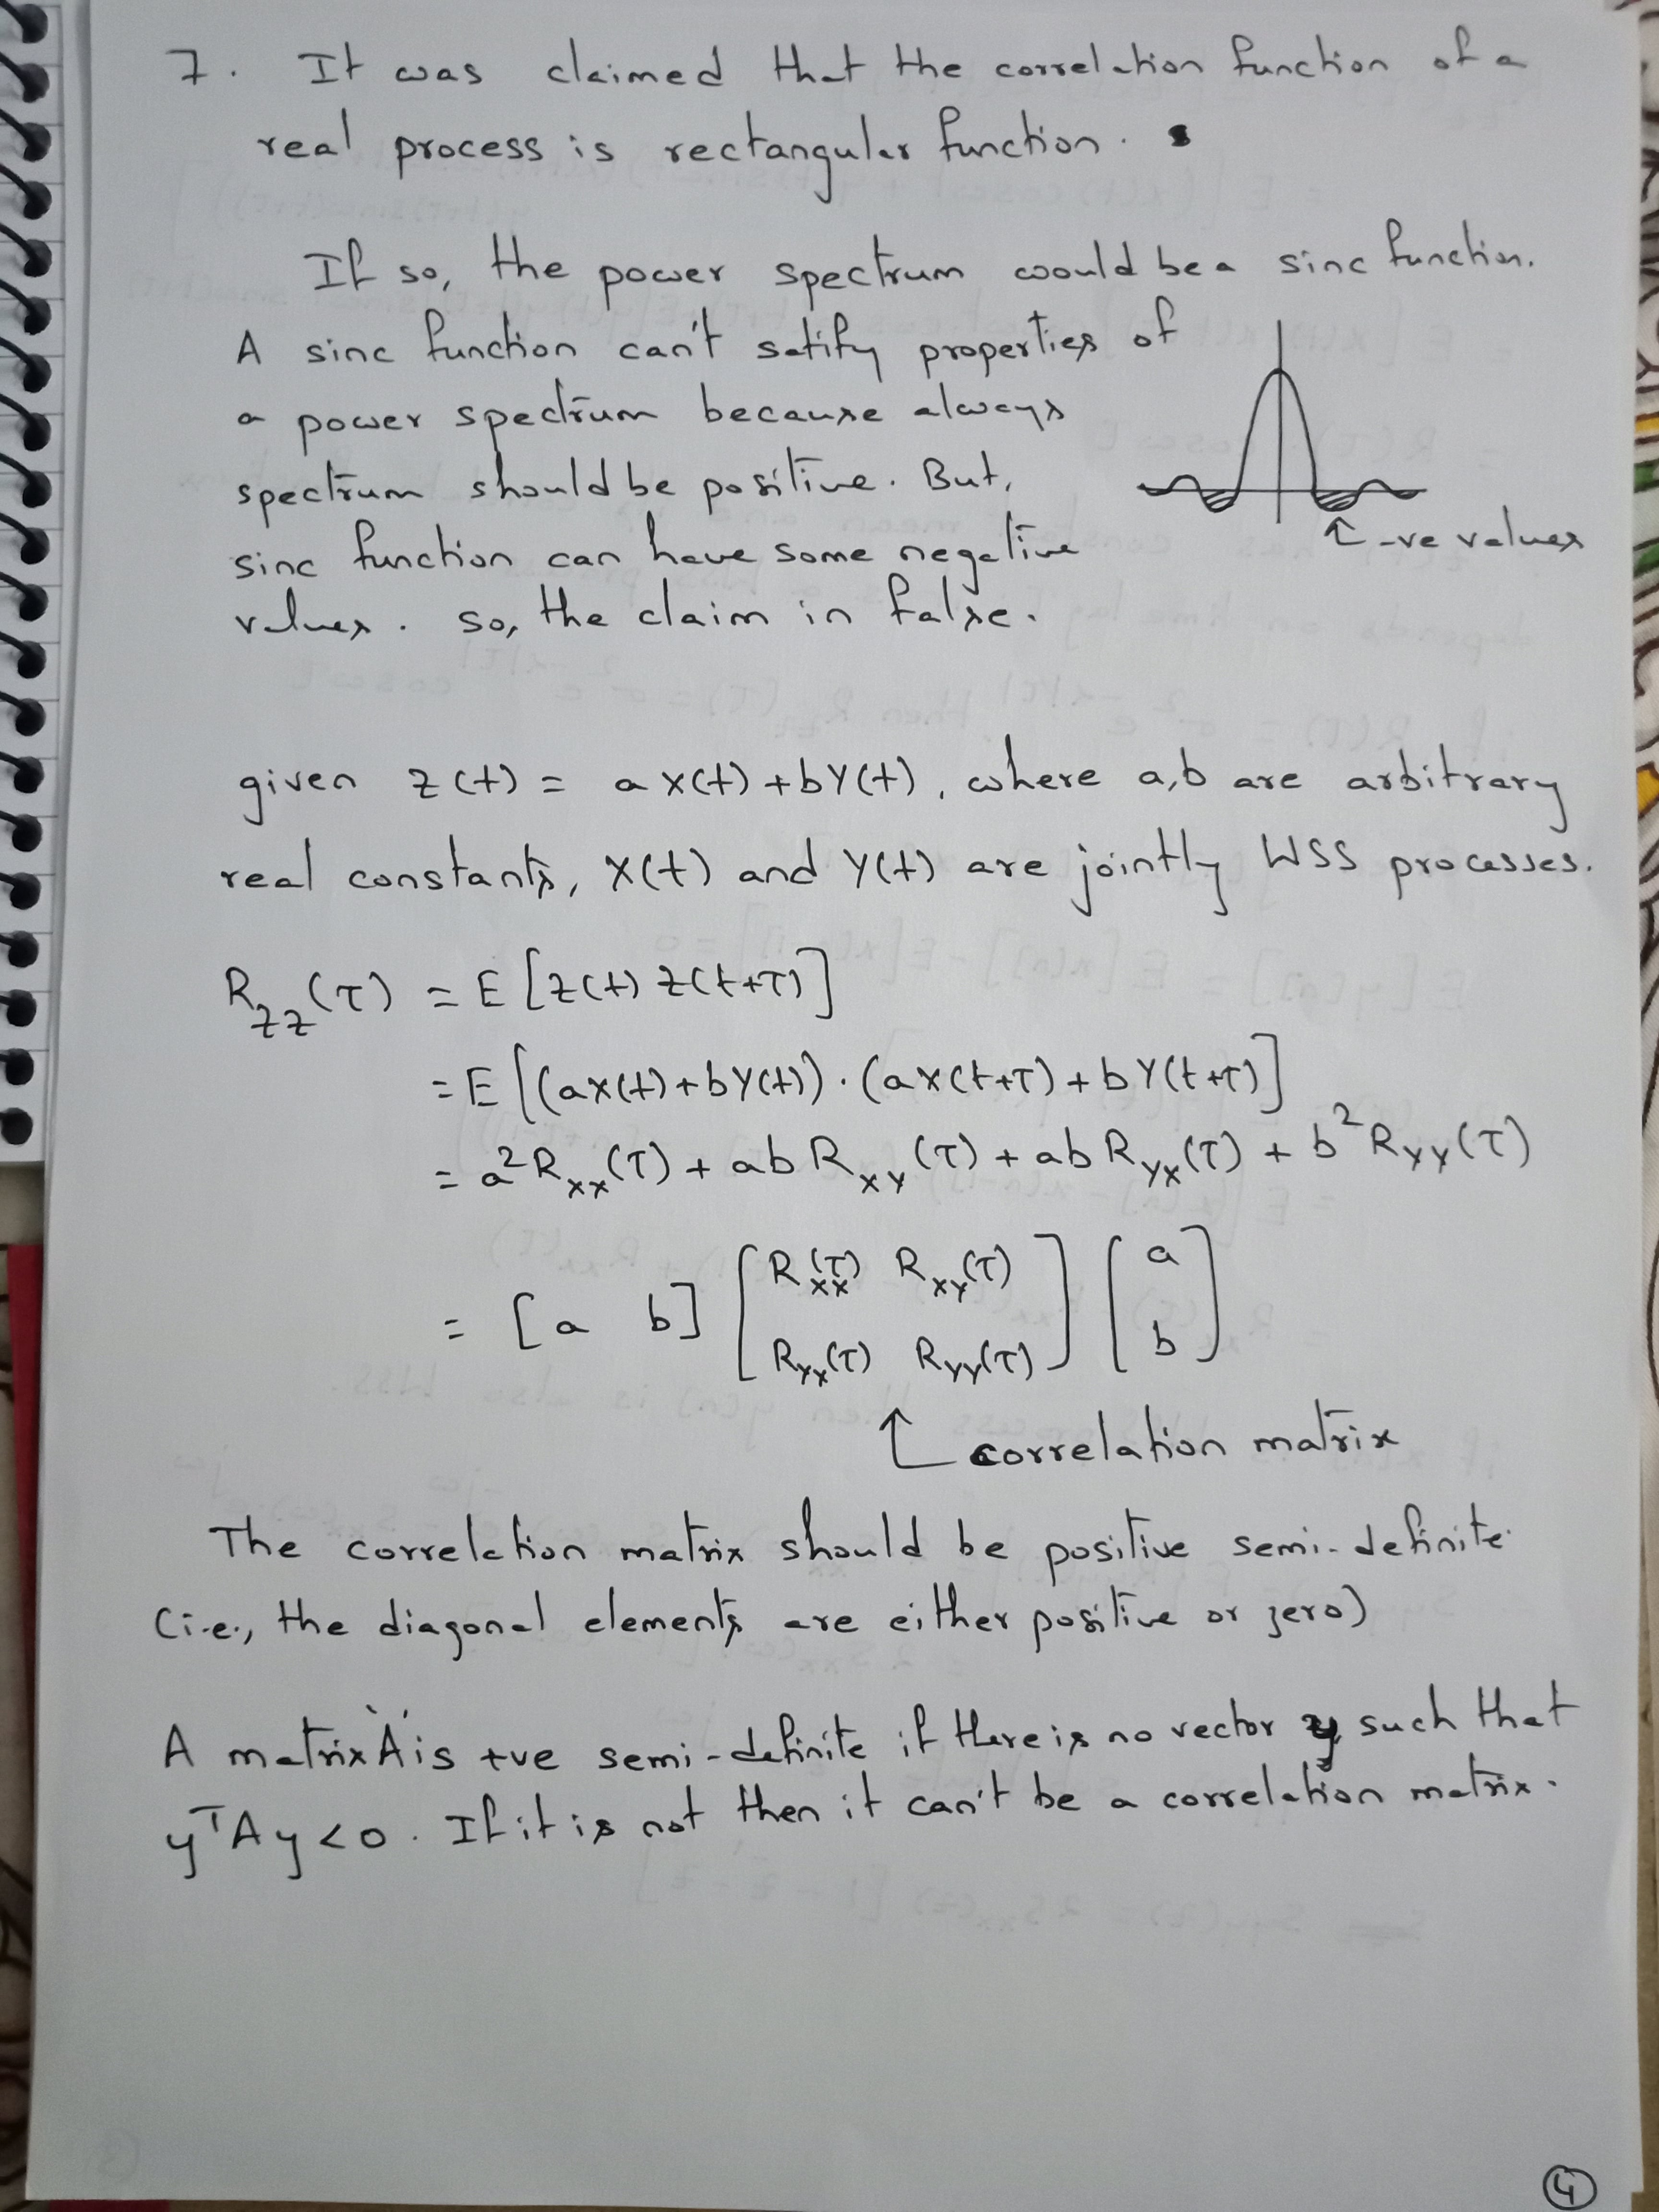 7. It was claimed that the correlation function of a
real process is rectangular function.
If so, the power spectrum would be a sinc function.
A sinc function can't satify properties of
a power spectrum because always
spectrum should be positive. But,
sinc function can have some negative
values. so, the claim in false.
↑ -ve values
given z(t) = a x(t) + b Y(t), where a,b are arbitrary
real constants, X(t) and Y(t) are jointly WSS processes.
R_zz(τ) = E[z(t) z(t+τ)]
= E[(ax(t)+by(t)).(ax(t+τ)+bY(t+τ)]
= a²R_xx(τ) + ab R_xy(τ) + ab R_yx(τ) + b²R_yy(τ)
= [a b] [R_xx(τ) R_xy(τ)] [a]
[R_yx(τ) R_yy(τ)] [b]
↑ correlation matrix
The correlation matrix should be positive semi-definite.
(i.e., the diagonal elements are either positive or zero)
A matrix 'A' is +ve semi-definite if there is no vector y such that
y^T A y < 0. If it is not then it can't be a correlation matrix.
4